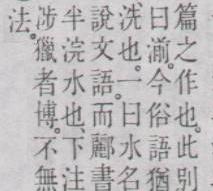 篇之作也。此別
曰湔。今俗語猶
洗也。一曰水名
說文語。而酈書
半浣水也。下注
涉獵者博。不無
法。